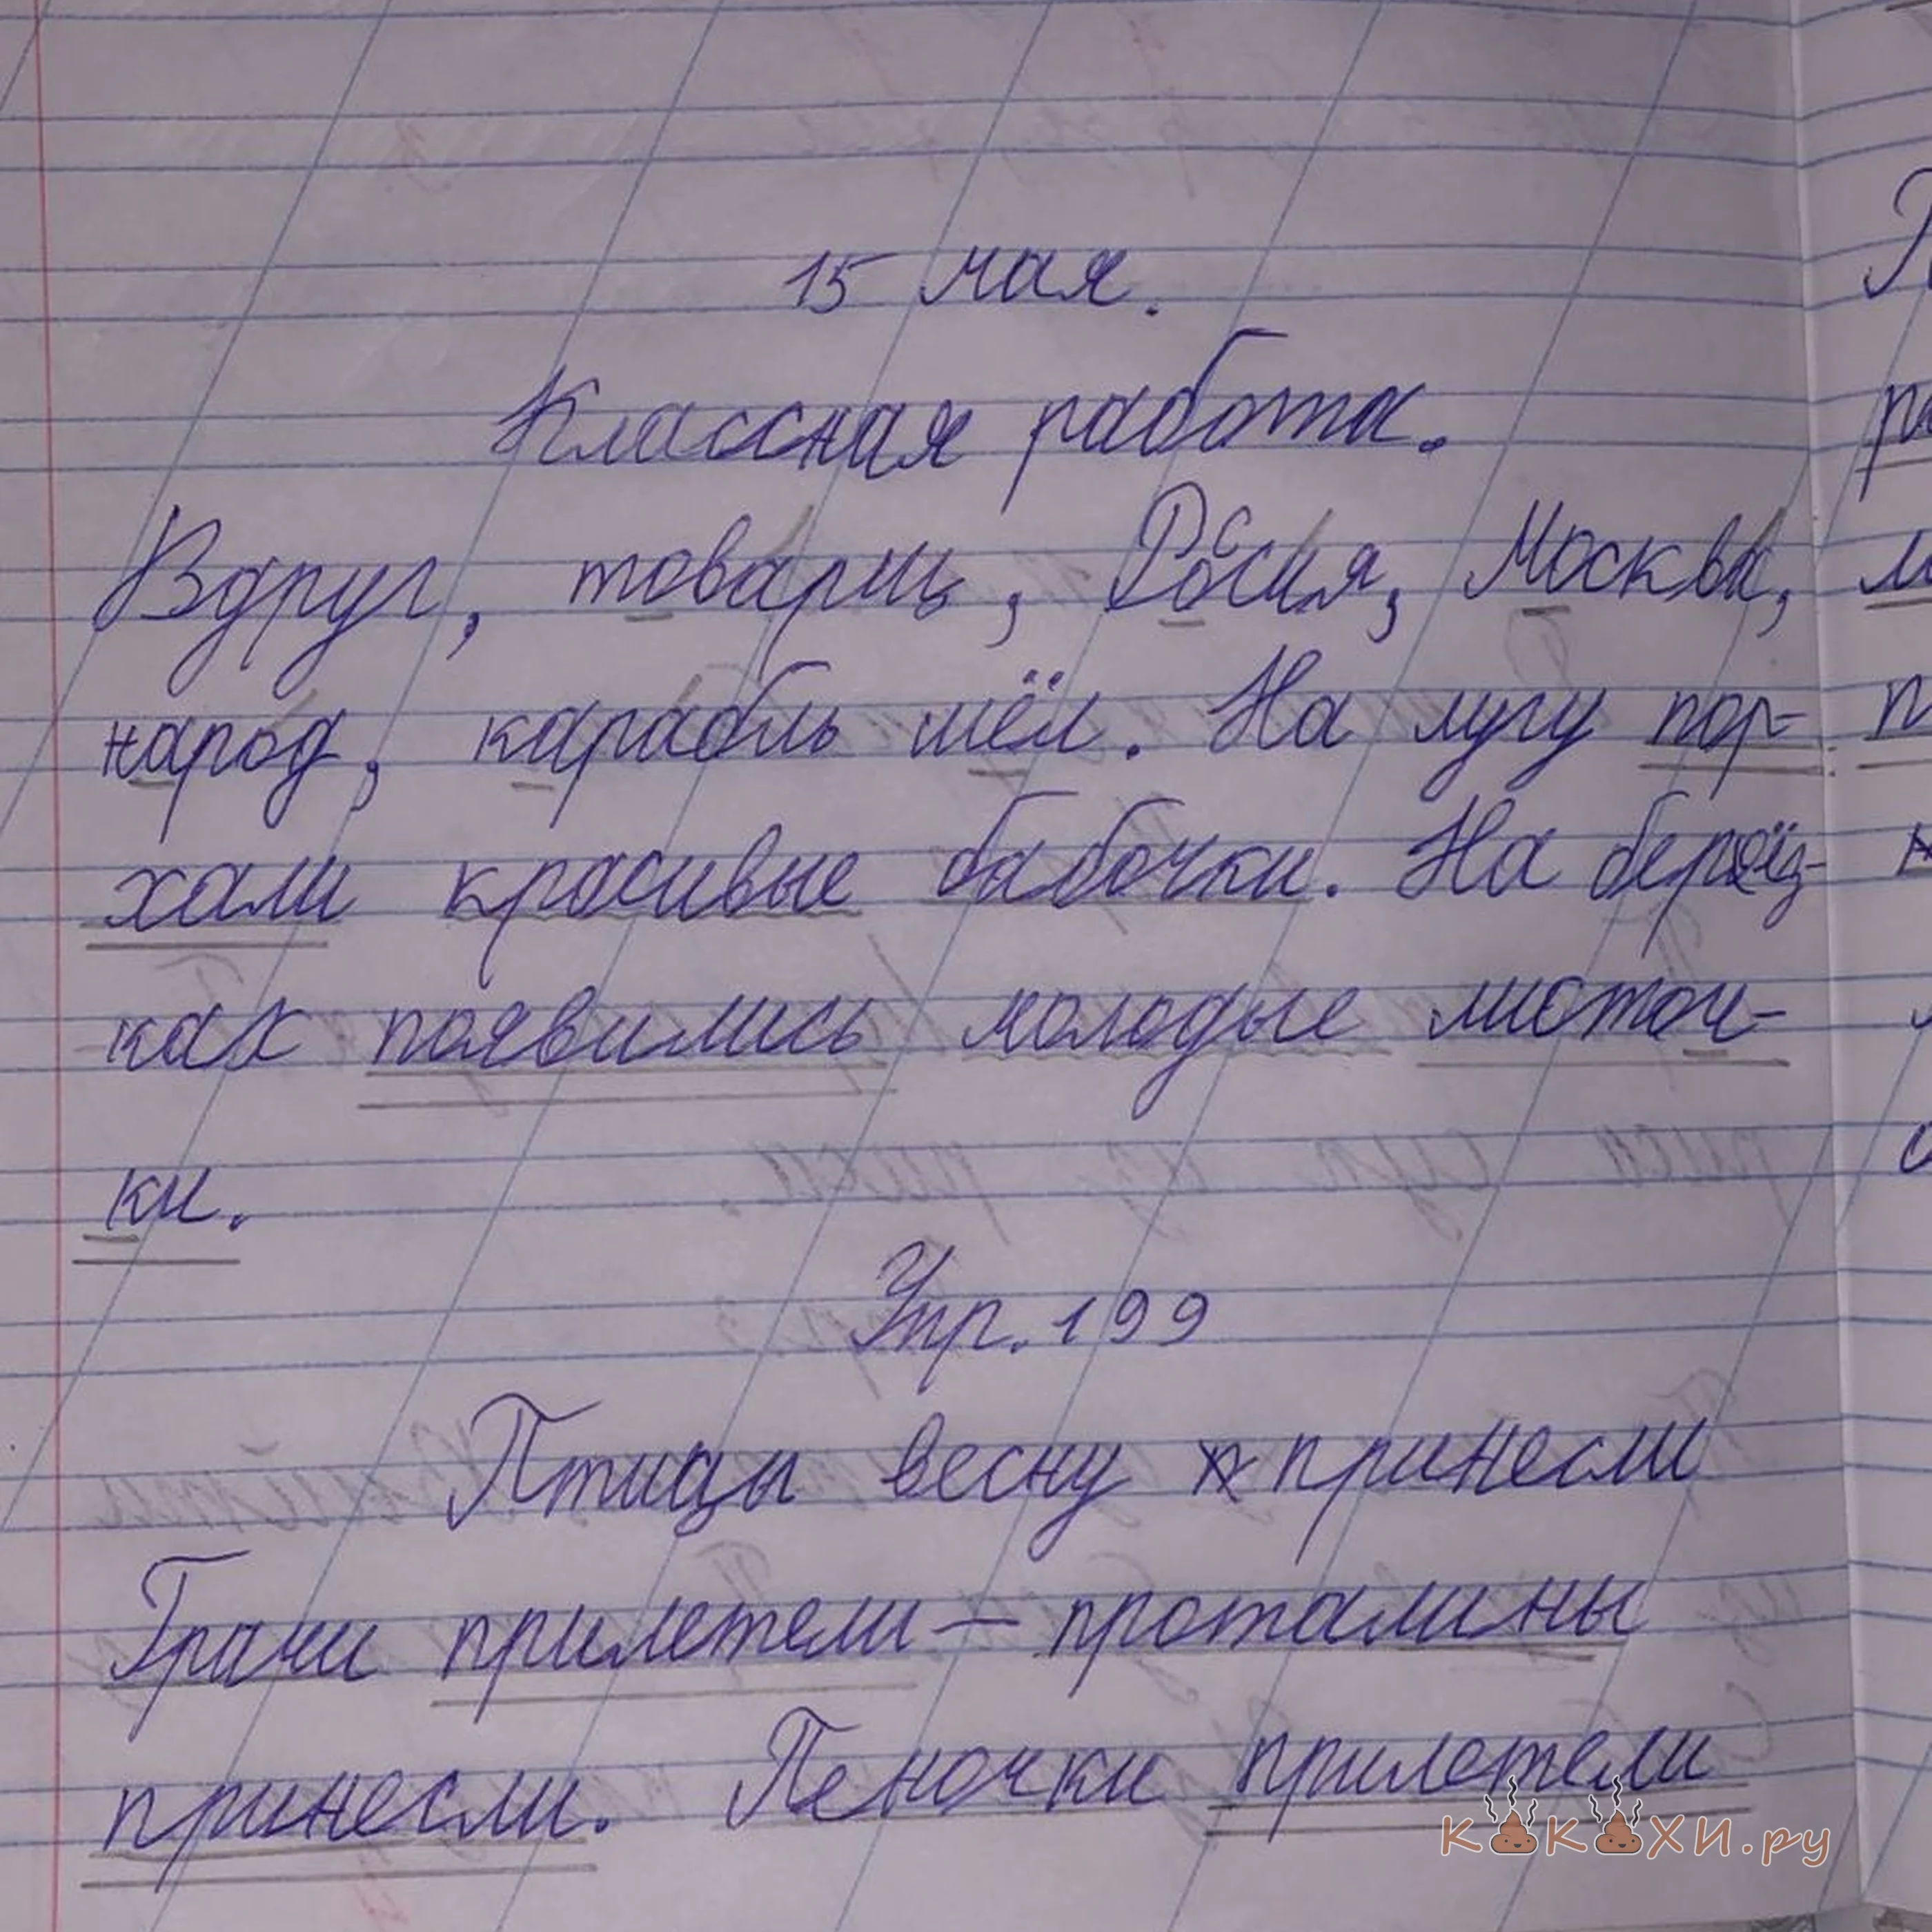 15 мая.
Классная работа.
Вдруг, товарищ, Россия, Москва,
народ, карабль шёл. На лугу пор-
хали красивые бабочки. На берёз-
ках появились молодые листоч-
ки.
Упр. 199
Птицы весну принесли
Грачи прилетели — проталины
принесли. Пеночки прилетели
какахи.ру